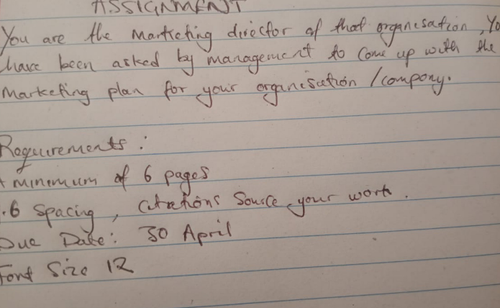 ASSIGNMENT
You are the marketing director of that organisation, Yo
have been asked by management to come up with the
marketing plan for your organisation / company.
Requirements :
minimum of 6 pages
.6 Spacing, citations Source your work.
Due Date : 30 April
Font Size 12